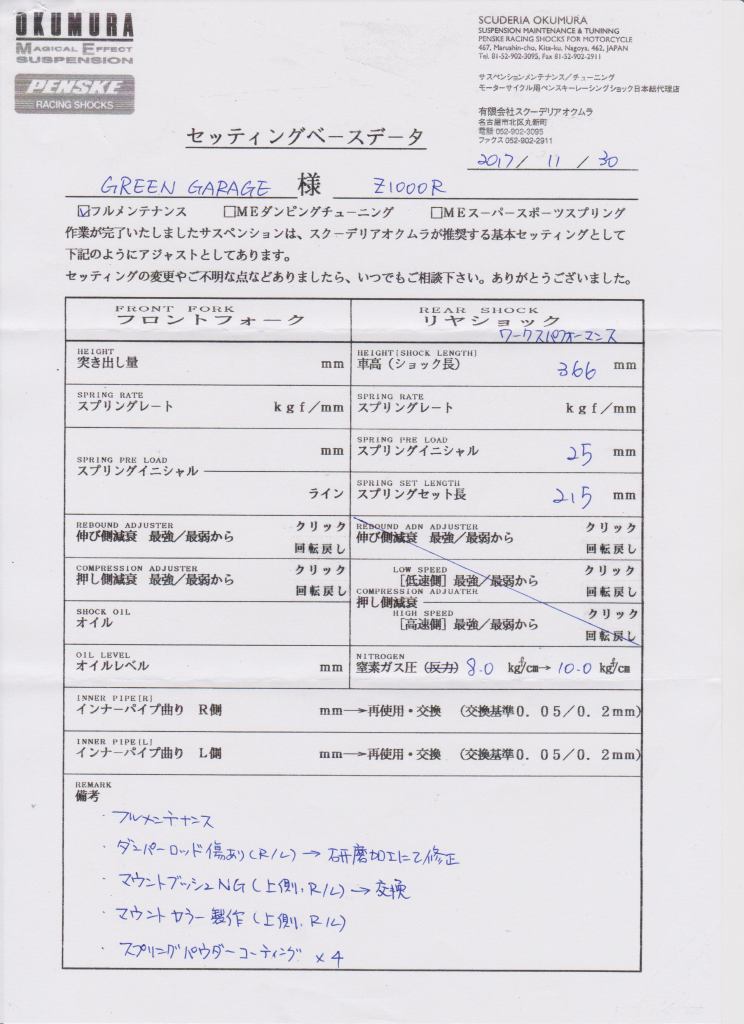 OKUMURA
MAGICAL EFFECT
SUSPENSION
PENSKE
RACING SHOCKS
SCUDERIA OKUMURA
SUSPENSION MAINTENANCE & TUNINNG
PENSKE RACING SHOCKS FOR MOTORCYCLE
467, Marushin-cho, Kita-ku, Nagoya, 462, JAPAN
Tel. 81-52-902-3095, Fax 81-52-902-2911
サスペンションメンテナンス／チューニング
モーターサイクル用ペンスキーレーシングショック日本総代理店
有限会社スクーデリアオクムラ
名古屋市北区丸新町
電話 052-902-3095
ファックス 052-902-2911
セッティングベースデータ
2017/ 11 / 30
GREEN GARAGE 様 Z1000R
☑フルメンテナンス □MEダンピングチューニング □MEスーパースポーツスプリング
作業が完了いたしましたサスペンションは、スクーデリアオクムラが推奨する基本セッティングとして
下記のようにアジャストとしてあります。
セッティングの変更やご不明な点などありましたら、いつでもご相談下さい。ありがとうございました。
FRONT FORK REAR SHOCK
フロントフォーク リヤショック
ワークスパフォーマンス
HEIGHT HEIGHT[SHOCK LENGTH]
突き出し量 mm 車高（ショック長） 366 mm
SPRING RATE SPRING RATE
スプリングレート kgf／mm スプリングレート kgf／mm
SPRING PRE LOAD
mm スプリングイニシャル 25 mm
SPRING PRE LOAD
スプリングイニシャル
SPRING SET LENGTH
ライン スプリングセット長 215 mm
REBOUND ADJUSTER クリック REBOUND ADN ADJUSTER クリック
伸び側減衰 最強／最弱から 伸び側減衰 最強／最弱から
回転戻し 回転戻し
COMPRESSION ADJUSTER クリック LOW SPEED クリック
押し側減衰 最強／最弱から [低速側] 最強／最弱から
回転戻し 回転戻し
COMPRESSION ADJUATER
押し側減衰
SHOCK OIL HIGH SPEED クリック
オイル [高速側] 最強／最弱から
回転戻し
OIL LEVEL NITROGEN
オイルレベル mm 窒素ガス圧 (反力) 8.0 kgf/cm²→ 10.0 kgf/cm²
INNER PIPE[R]
インナーパイプ曲り R側 mm→再使用・交換 （交換基準0．05／0．2mm）
INNER PIPE[L]
インナーパイプ曲り L側 mm→再使用・交換 （交換基準0．05／0．2mm）
REMARK
備考
・フルメンテナンス
・ダンパーロッド傷あり(R/L) → 研磨加工にて修正
・マウントブッシュNG (上側, R/L) → 交換
・マウントカラー製作 (上側, R/L)
・スプリングパウダーコーティング ×4